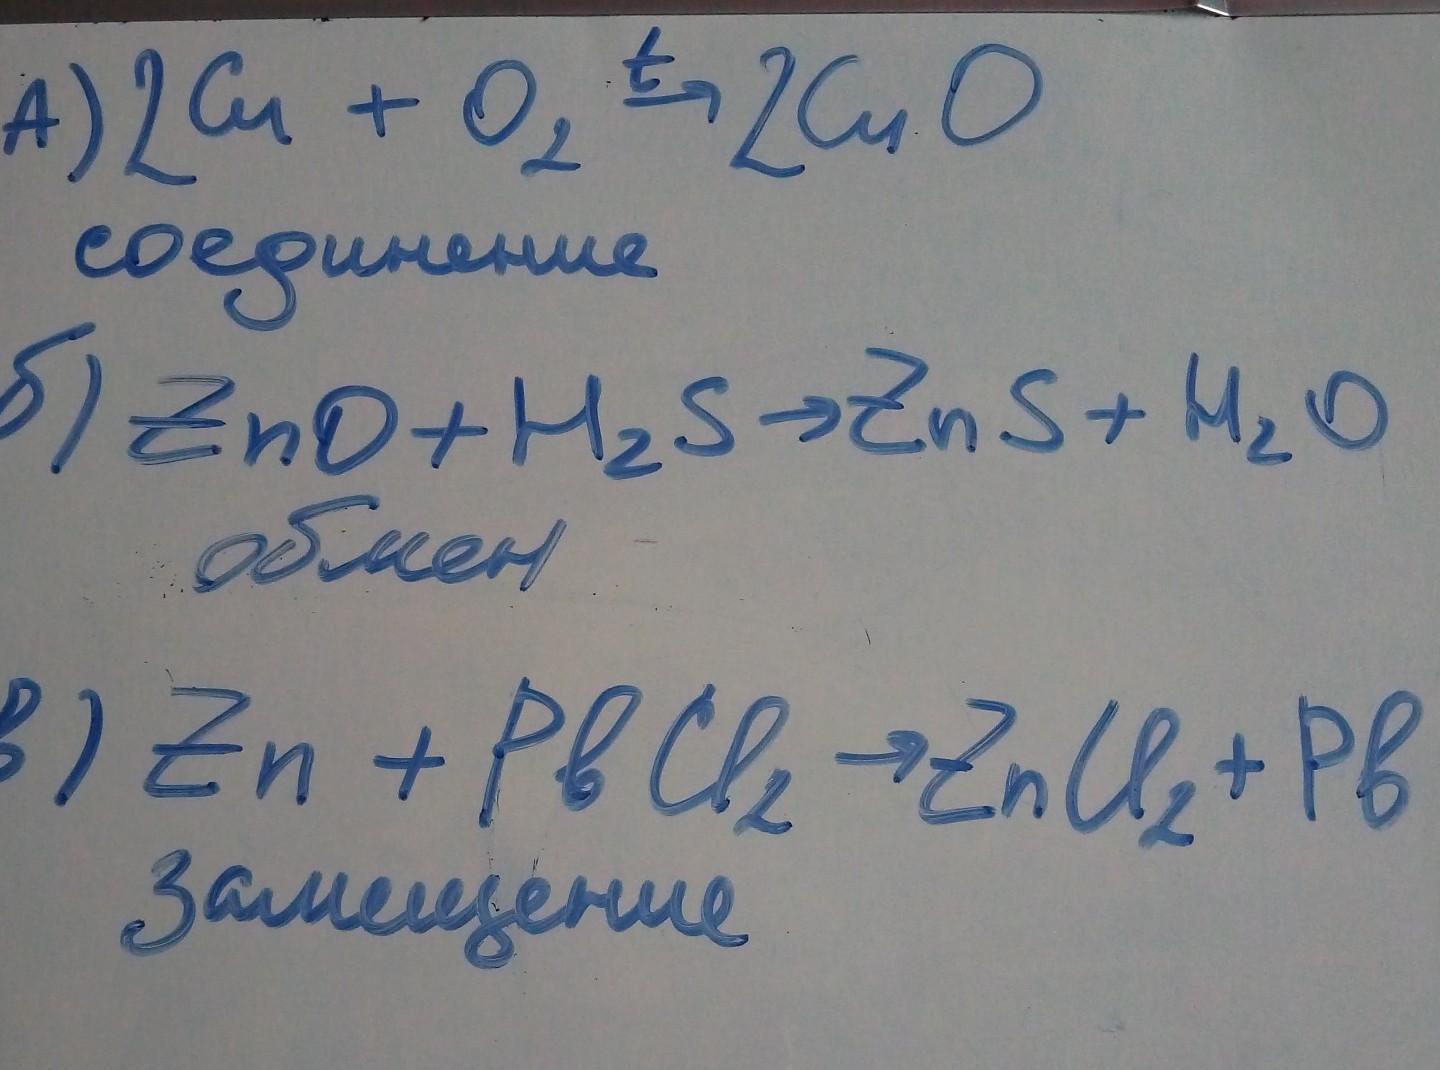 А) 2Cu + O₂ t→ 2CuO
соединение
б) ZnO + H₂S → ZnS + H₂O
обмен
в) Zn + PbCl₂ → ZnCl₂ + Pb
замещение